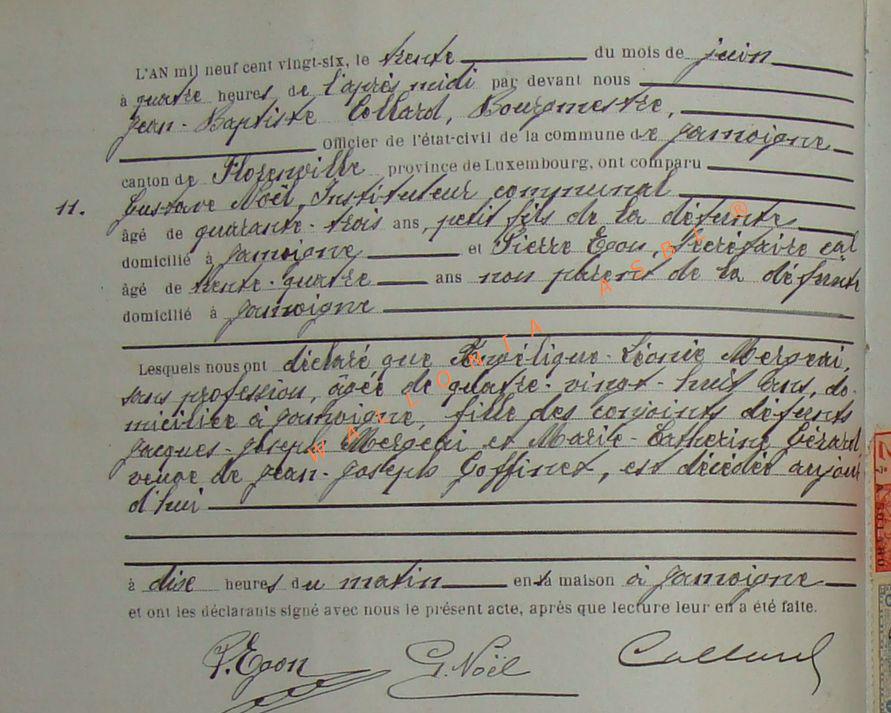 L'AN mil neuf cent vingt-six, le trente du mois de juin
à quatre heures de l'après midi par devant nous
Jean-Baptiste Collard, Bourgmestre,
Officier de l'état-civil de la commune de Jamoigne
canton de Florenville province de Luxembourg, ont comparu
11. Gustave Noël, Instituteur communal
âgé de quarante-trois ans, petit fils de la défunte
domicilié à Jamoigne et Pierre Egon, Secrétaire cal
âgé de trente-quatre ans non parent de la défunte
domicilié à Jamoigne
Lesquels nous ont déclaré que Angélique-Léonie Mergeai,
sans profession, âgée de quatre-vingt-huit ans, do-
miciliée à Jamoigne, fille des conjoints défunts
Jacques-Joseph Mergeai et Marie-Catherine Gérard,
veuve de Jean-Joseph Goffinet, est décédée aujour
d'hui
à dix heures du matin en sa maison à Jamoigne
et ont les déclarants signé avec nous le présent acte, après que lecture leur en a été faite.
P. Egon G. Noël Collard
WALLONIA ASBL ®